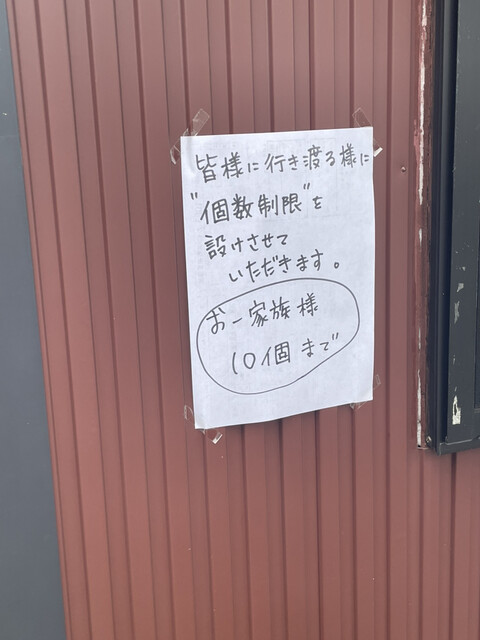 皆様に行き渡る様に
"個数制限"を
設けさせて
いただきます。
お一家族様
10個まで